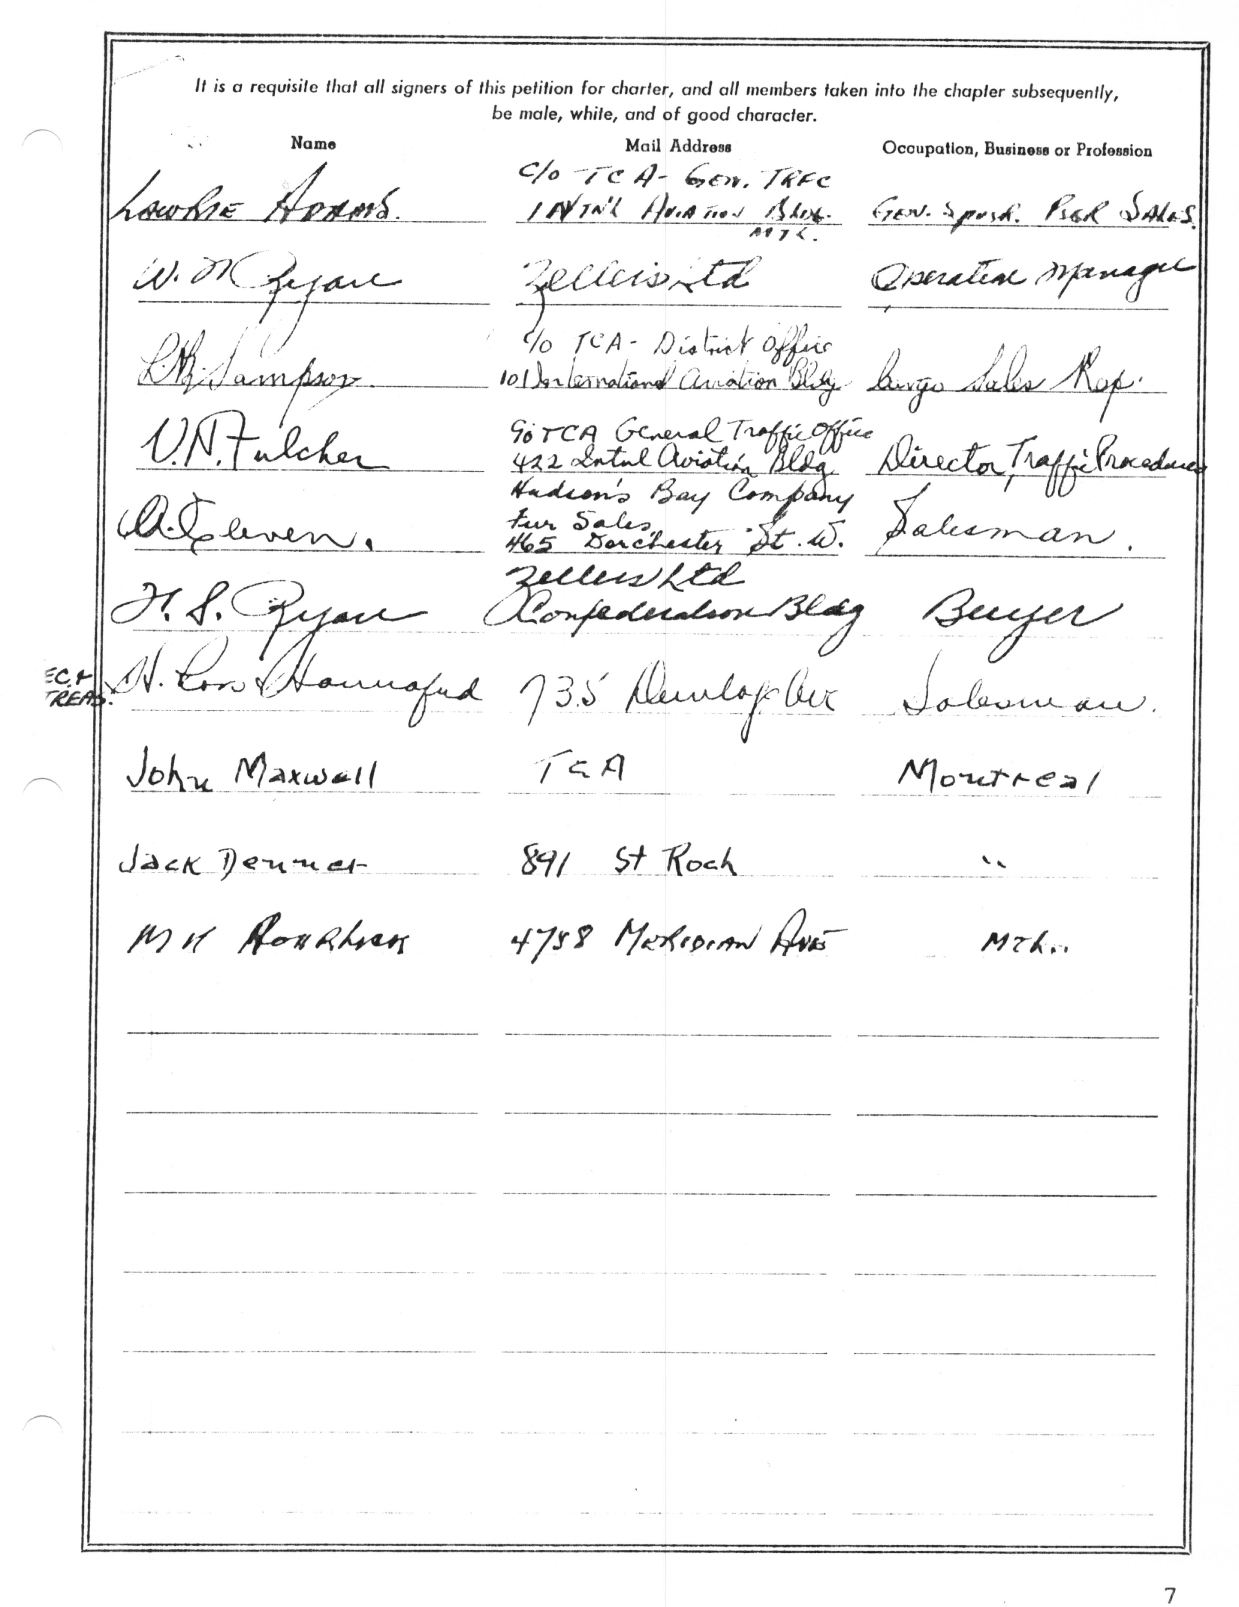 It is a requisite that all signers of this petition for charter, and all members taken into the chapter subsequently,
be male, white, and of good character.
Name Mail Address Occupation, Business or Profession
c/o TCA - GEN. TRFC
LOWRIE ADAMS. INTN'L AVIATION BLDG. GEN. SPVSR. PSGR SALES.
MTL.
W. N Ryan Zellers Ltd Operation Manager
c/o TCA - District Office
Sampson 101 International Aviation Bldg Cargo Sales Rep.
c/o TCA General Traffic Office
V.N. Fulcher 422 Intnl Aviation Bldg Director, Traffic Procedures
Hudson's Bay Company
Fur Sales
465 Dorchester St. W. Salesman.
Zellers Ltd
H. S. Ryan Confederation Bldg Buyer
EC. &
TREAS. H. Ross Hannaford 735 Dunlop Ave Salesman.
John Maxwell TCA Montreal
Jack 891 St Roch "
M K 4788 MERIDIAN AVE MTL..
7